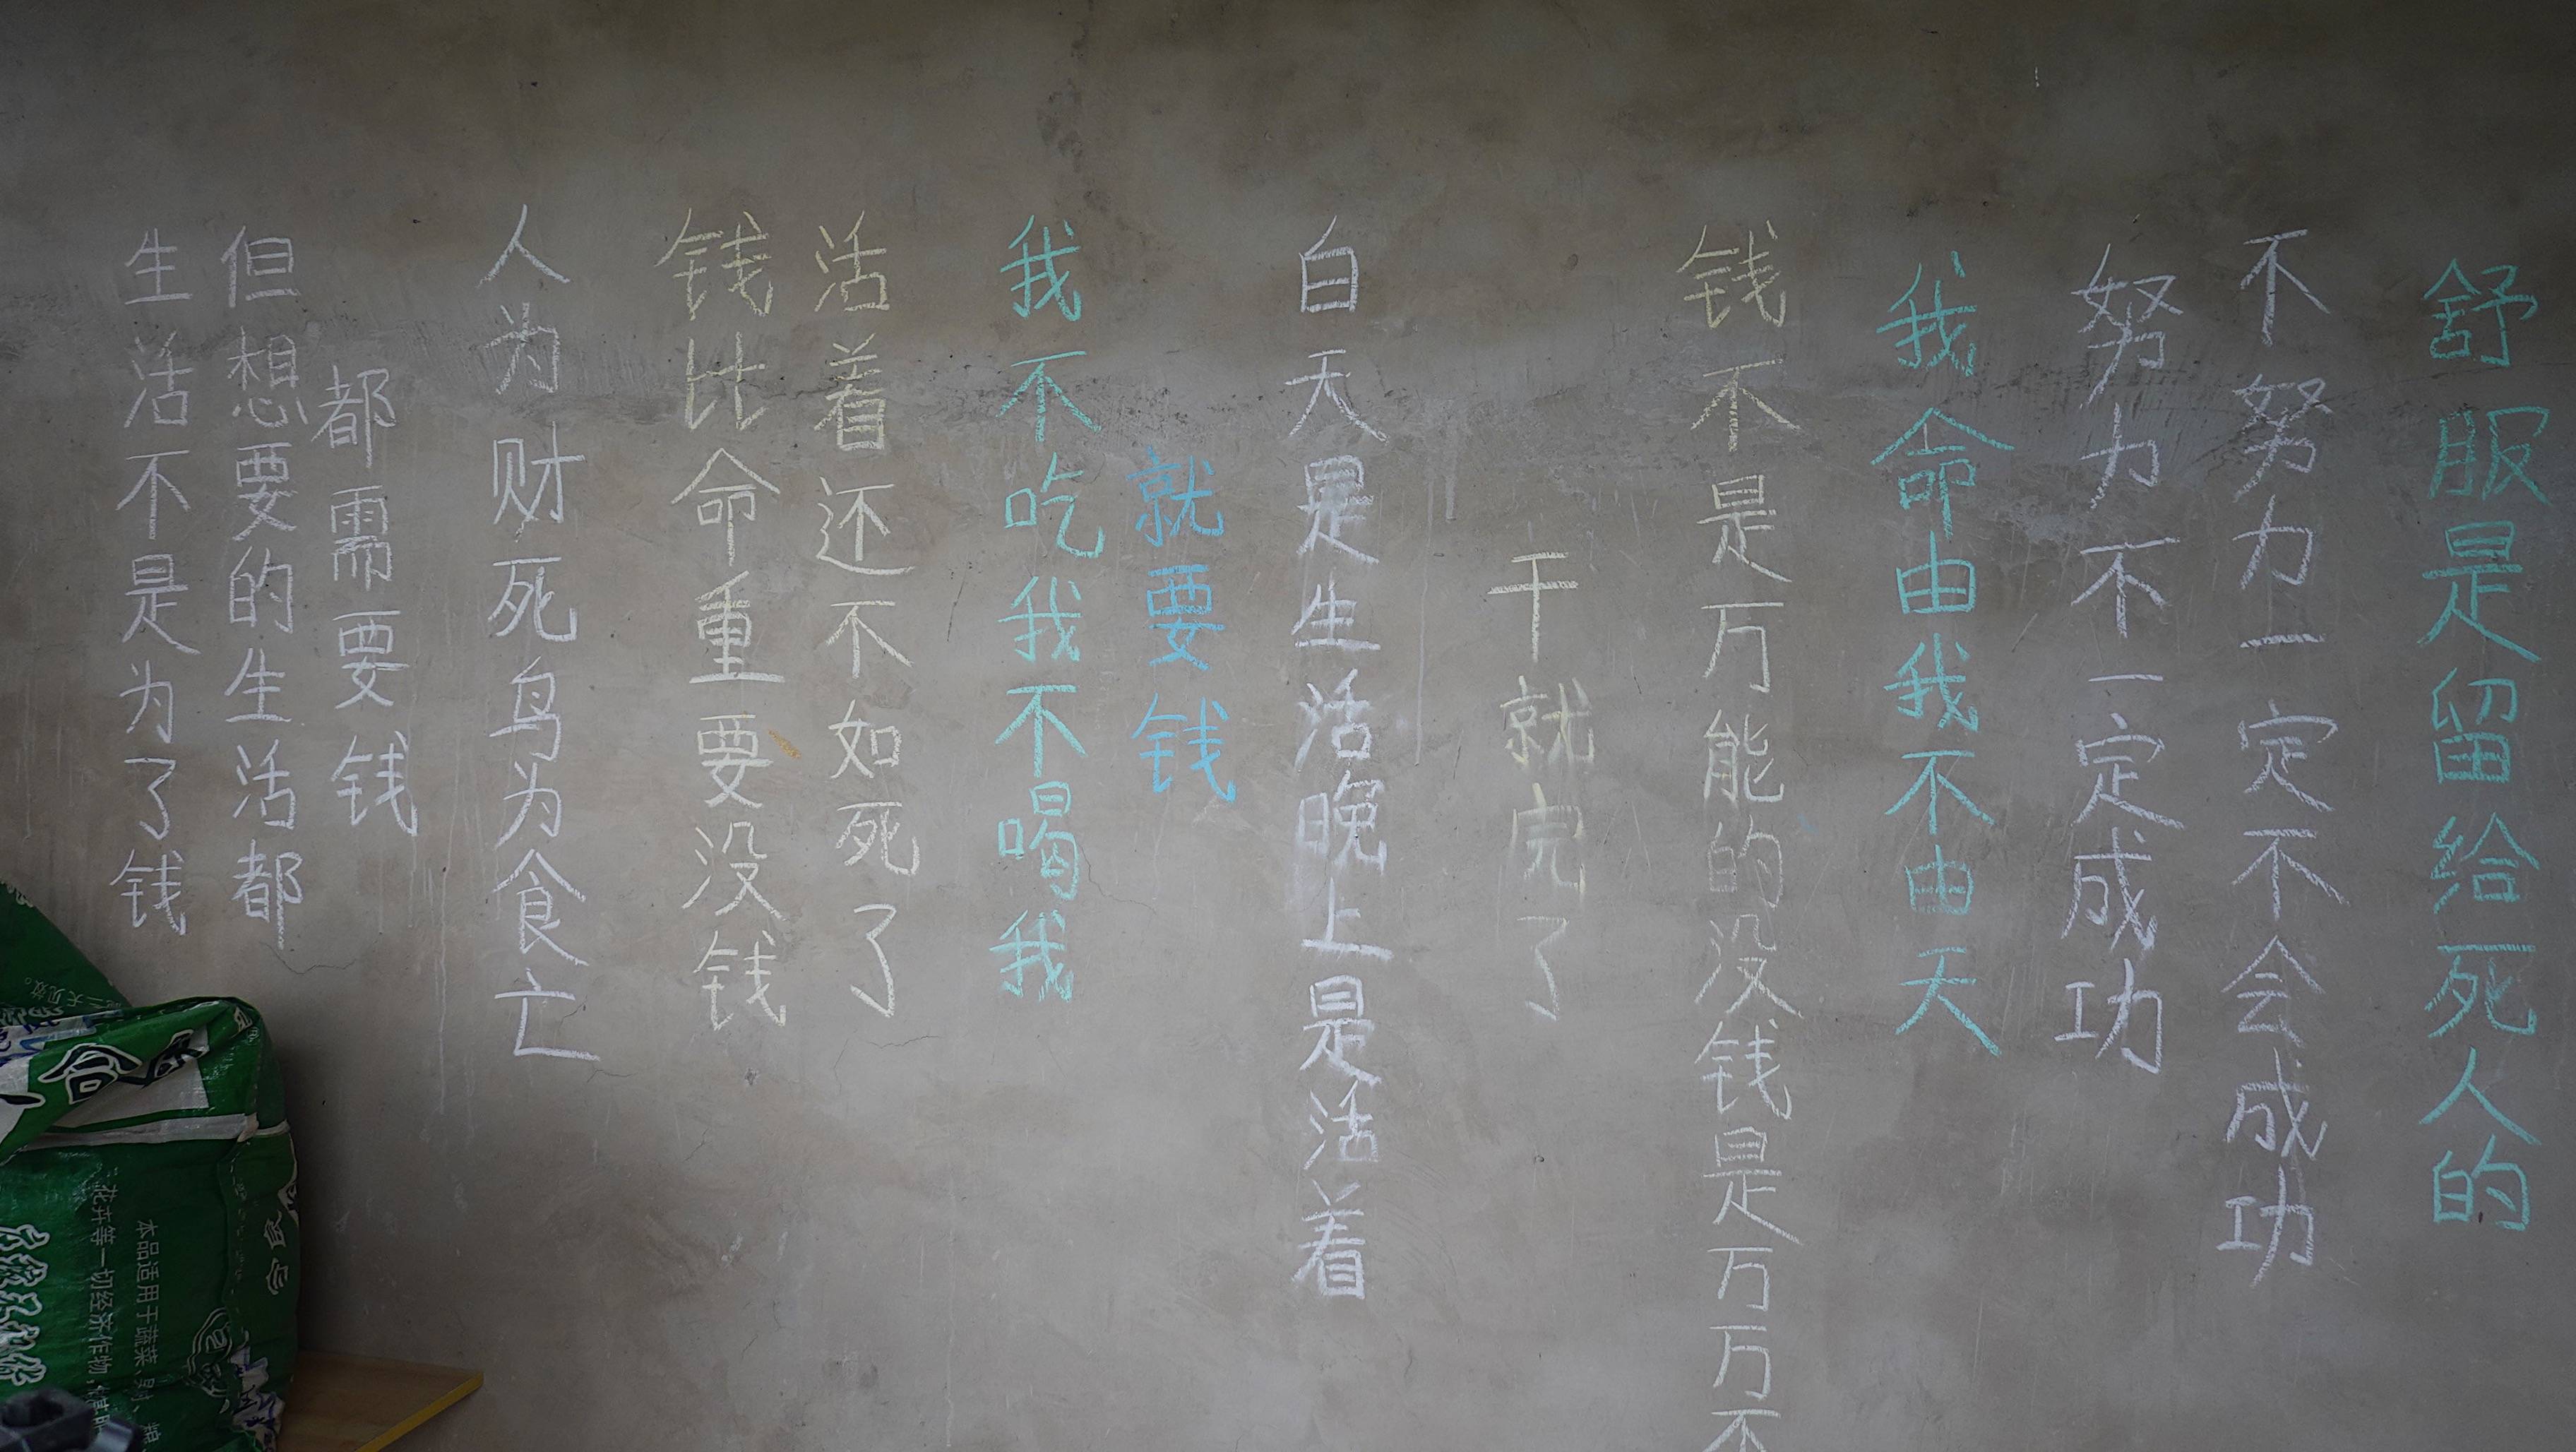 生活不是为了钱
但想要的生活都
都需要钱
人为财死鸟为食亡
钱比命重要没钱
活着还不如死了
我不吃我不喝我
就要钱
白天是生活晚上是活着
干就完了
钱不是万能的没钱是万万不
我命由我不由天
努力不一定成功
不努力一定不会成功
舒服是留给死人的
本品适用于蔬菜
花卉等一切经济作物,